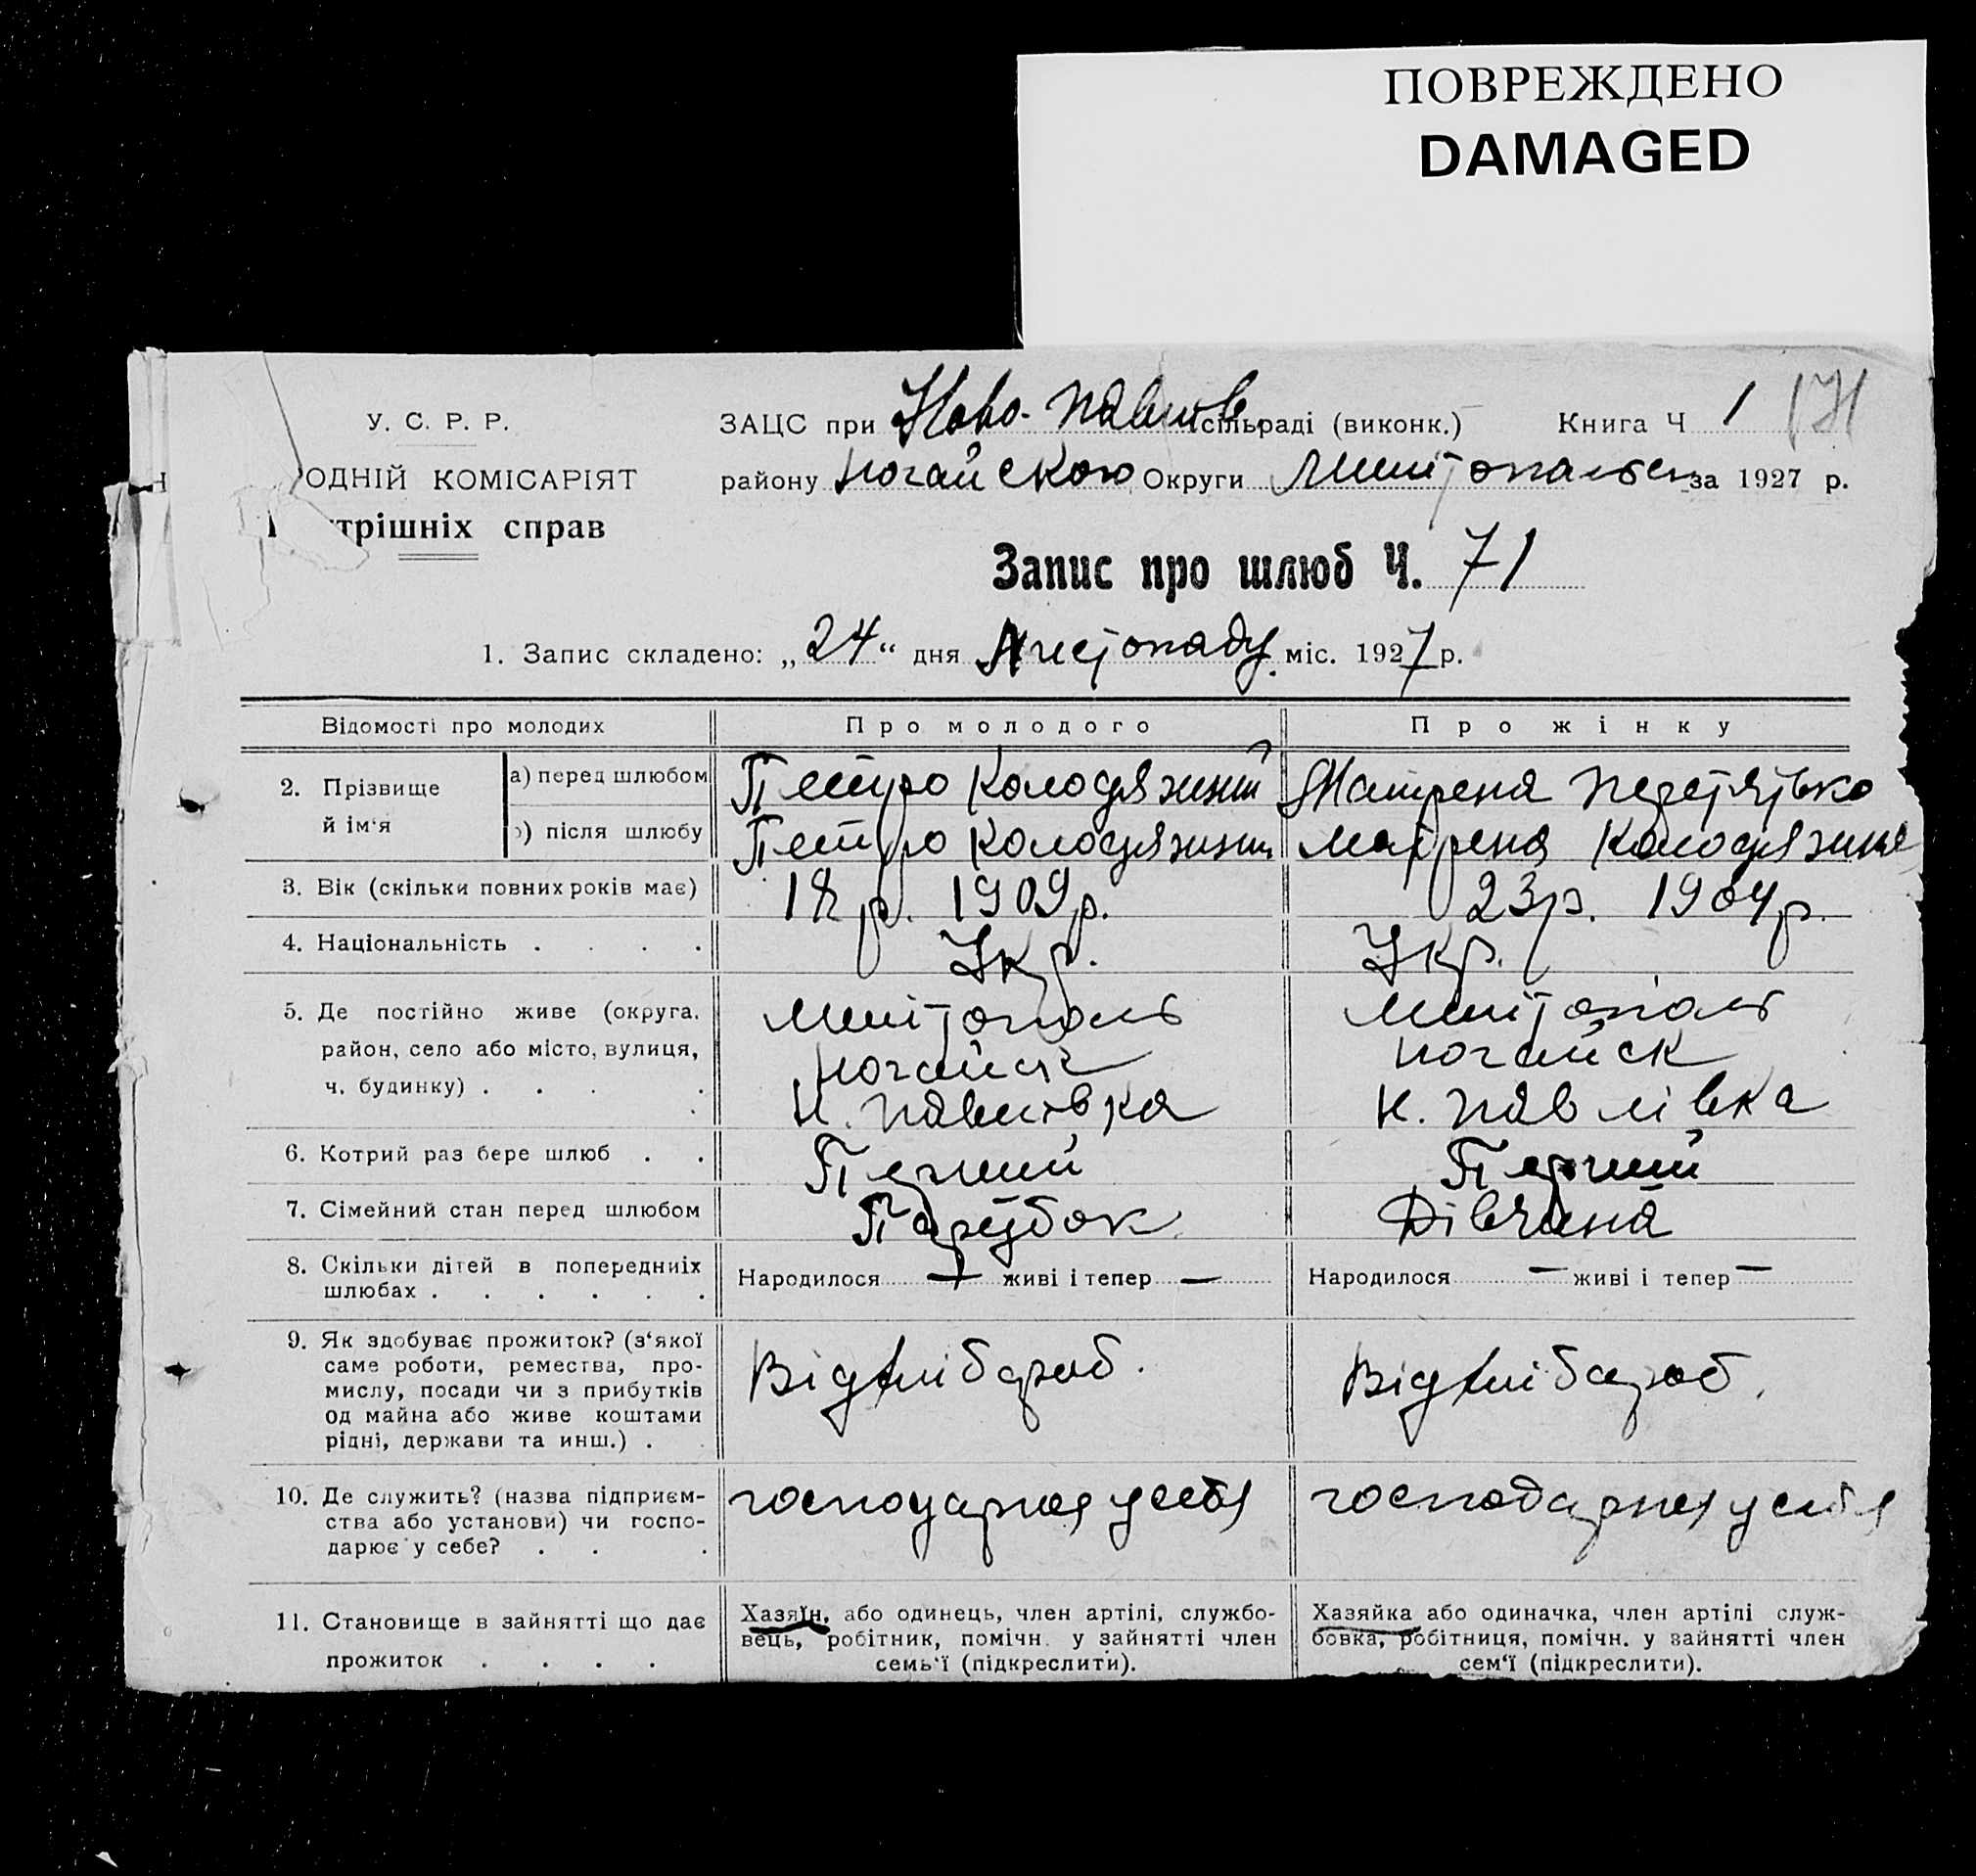 ПОВРЕЖДЕНО
DAMAGED
У. С. Р. Р.
ЗАЦС при Ново-Павлів сільраді (виконк.) Книга Ч 1 171
Н ОДНІЙ КОМІСАРІЯТ
району Ногайского Округи за 1927 р.
трішніх справ
Запис про шлюб Ч. 71
1. Запис складено: „24“ дня Листопаду міс. 1927 р.
Відомості про молодих Про молодого Про жінку
2. Прізвище й ім‘я
а) перед шлюбом Петро Колодяжний Матрена
) після шлюбу Петро Колодяжний Матрена Колодяжня
3. Вік (скільки повних років має) 18 р. 1909 р. 23 р. 1904 р.
4. Національність . . . . Укр. Укр.
5. Де постійно живе (округа, Мелітополь Мелітополь
район, село або місто, вулиця, Ногайск Ногайск
ч. будинку) . . . . Н. Павлівка Н. Павлівка
6. Котрий раз бере шлюб . . Перший Перший
7. Сімейний стан перед шлюбом Парубок Дівчина
8. Скільки дітей в попередниіх Народилося — живі і тепер — Народилося — живі і тепер —
шлюбах . . . . . .
9. Як здобуває прожиток? (з‘якої
саме роботи, ремества, про-
мислу, посади чи з прибутків Від хлібароб. Від хлібароб.
од майна або живе коштами
рідні, держави та инш.) .
10. Де служить? (назва підприєм- господарює у себя господарює у себя
ства або установи) чи госпо-
дарює у себе? . . .
11. Становище в зайнятті що дає
прожиток . . . .
Хазяїн, або одинець, член артілі, службо-
вець, робітник, помічн. у зайнятті член
семь‘ї (підкреслити).
Хазяйка або одиначка, член артілі служ-
бовка, робітниця, помічн. у зайнятті член
сем‘ї (підкреслити).